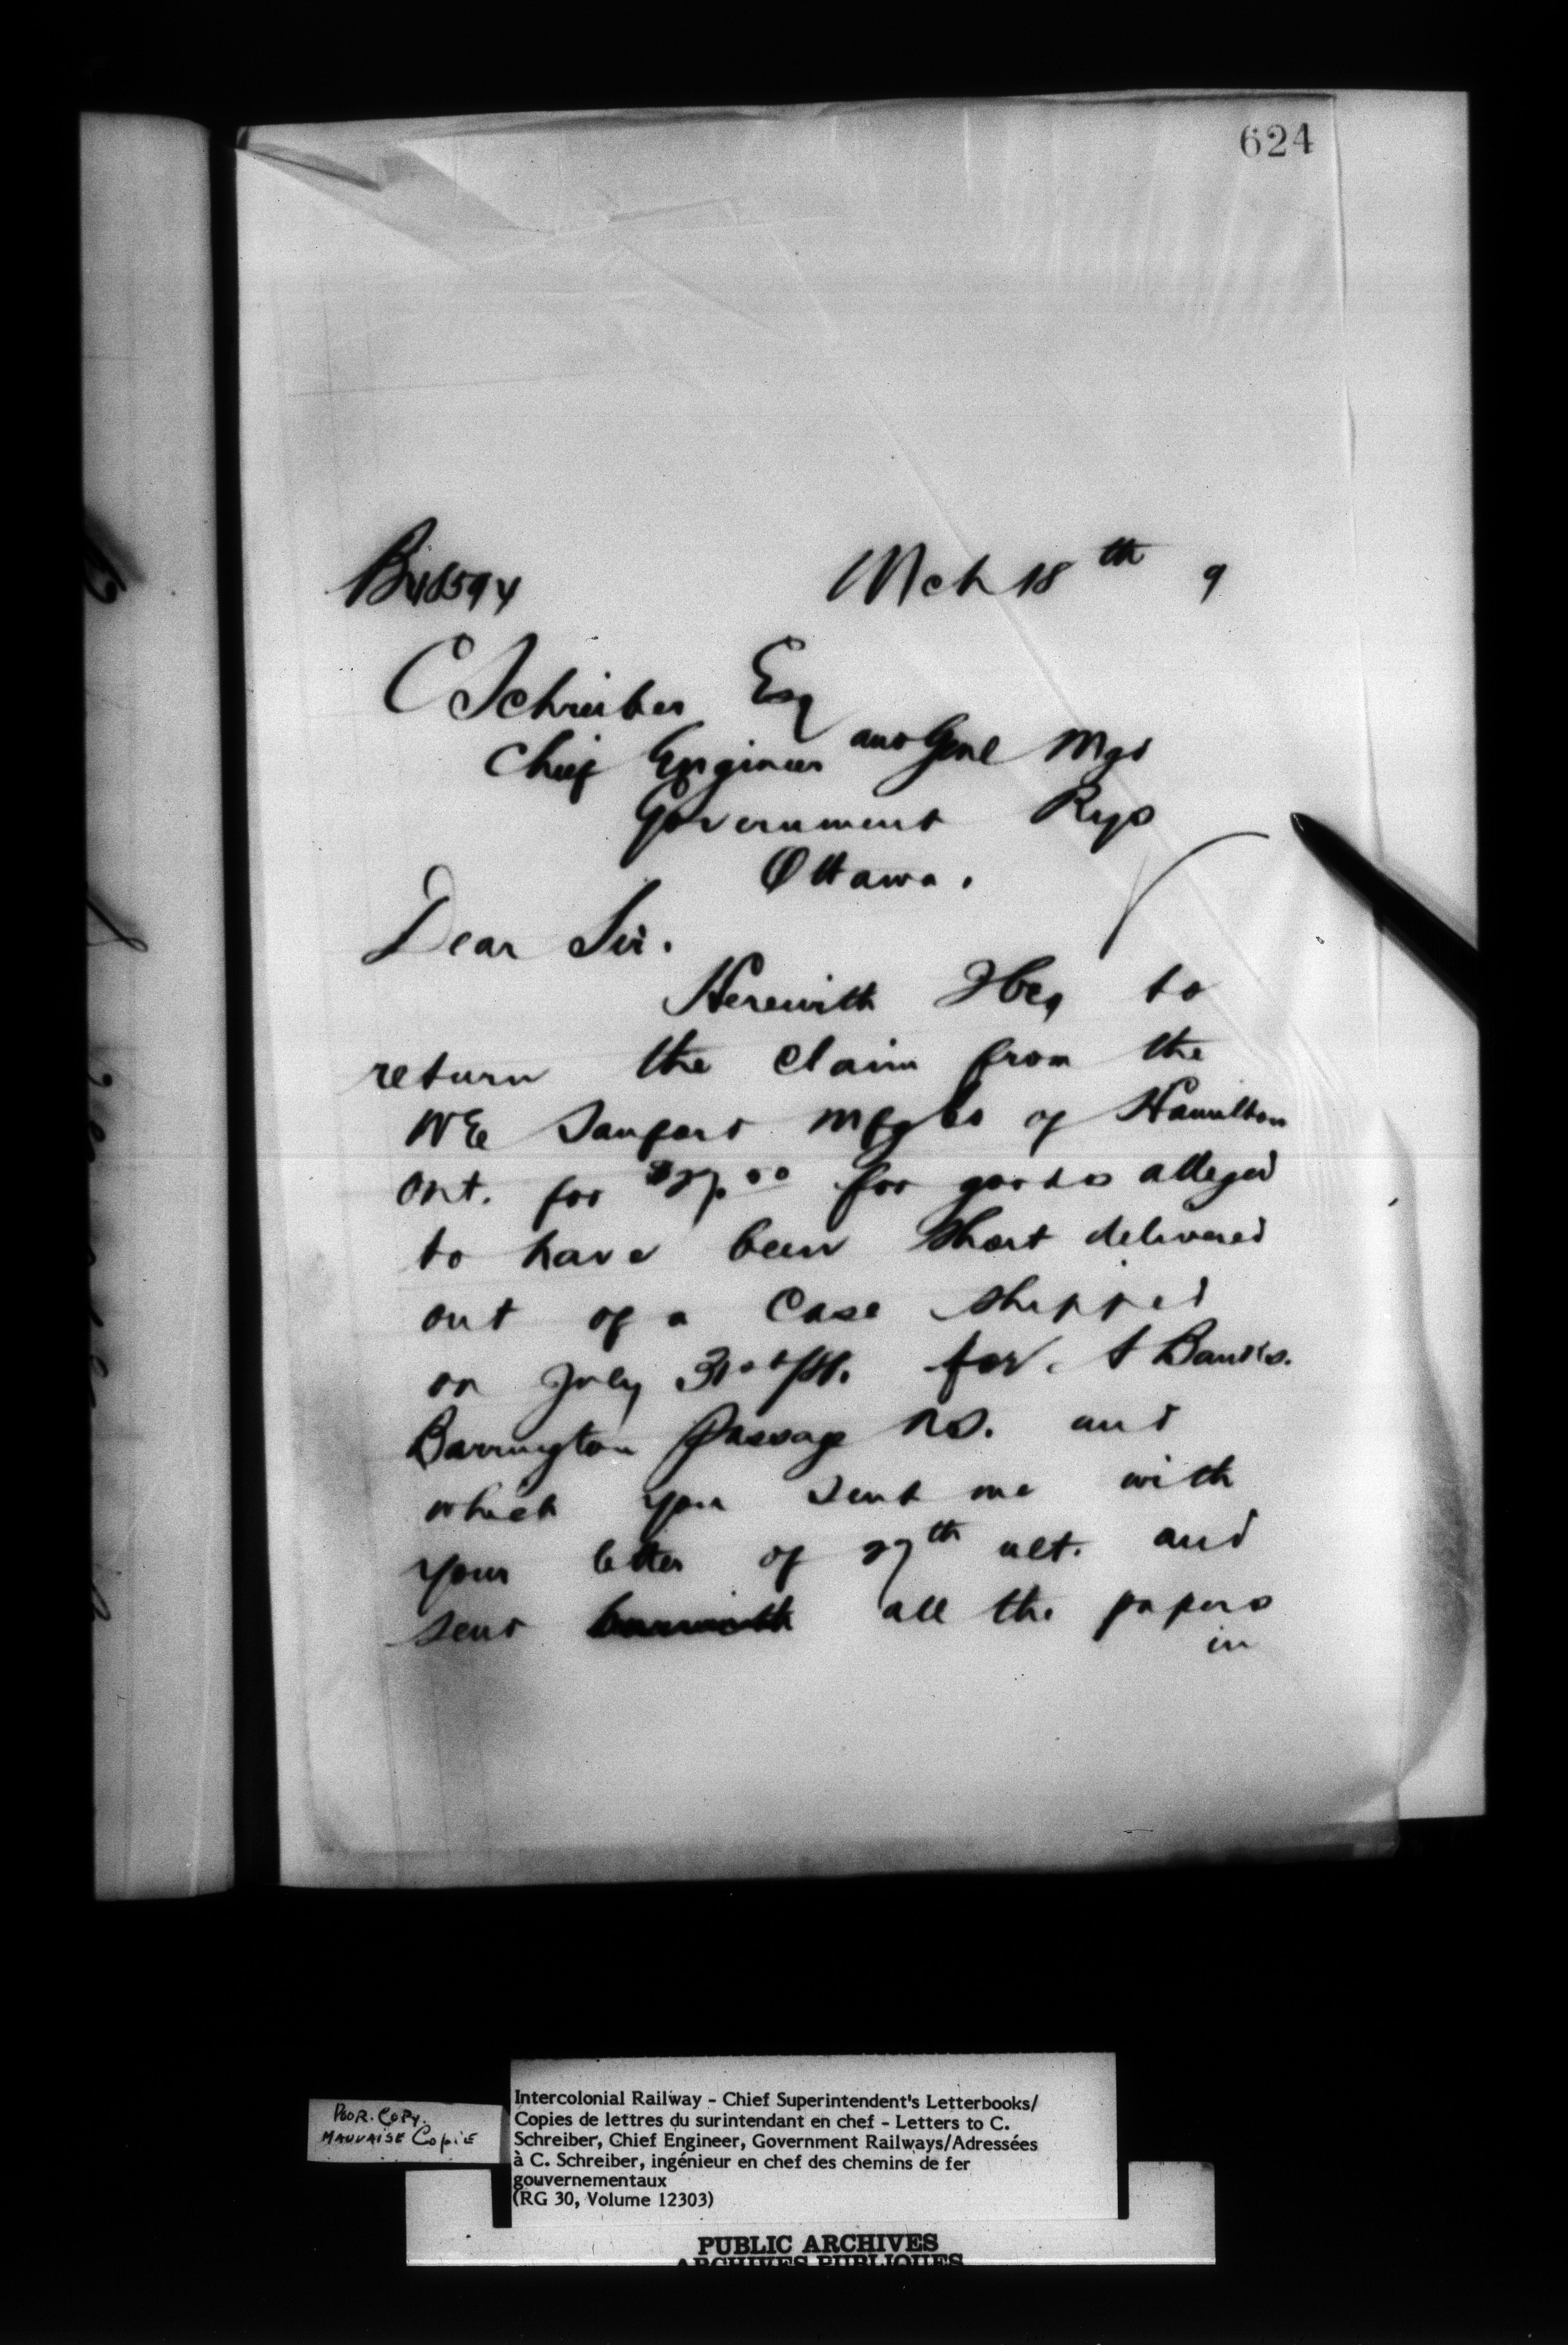 624
B48594 Mch 18th 9
C Schreiber Esq
Chief Engineer and Genl Mgr
Government Rys
Ottawa.
Dear Sir.
Herewith I beg to
return the Claim from the
WE Sanford Mfg Co of Hamilton
Ont. for $27.00 for goods alleged
to have been Short delivered
out of a Case shipped
on July 31st for. A Banks.
Barrington Passage NS. and
which you sent me with
your letter of 27th ult. and
send all the papers
in
POOR. COPY.
MAUVAISE COPIE
Intercolonial Railway - Chief Superintendent's Letterbooks/
Copies de lettres du surintendant en chef - Letters to C.
Schreiber, Chief Engineer, Government Railways/Adressées
à C. Schreiber, ingénieur en chef des chemins de fer
gouvernementaux
(RG 30, Volume 12303)
PUBLIC ARCHIVES
ARCHIVES PUBLIQUES